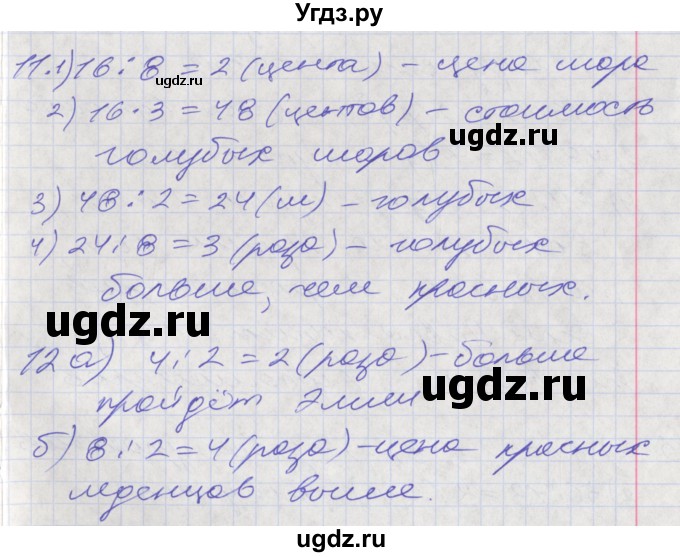 Угдз.ру
11.1) 16 : 8 = 2 (цента) – цена шара
2) 16 · 3 = 48 (центов) – стоимость
голубых шаров
3) 48 : 2 = 24 (ш) – голубых
4) 24 : 8 = 3 (раза) – голубых
больше, чем красных.
12 а) 4 : 2 = 2 (раза) – больше
пройдёт Элли
б) 8 : 2 = 4 (раза) – цена красных
леденцов выше.
ugdz.ru
ugdz.ru
ugdz.ru
ugdz.ru
ugdz.ru
ugdz.ru